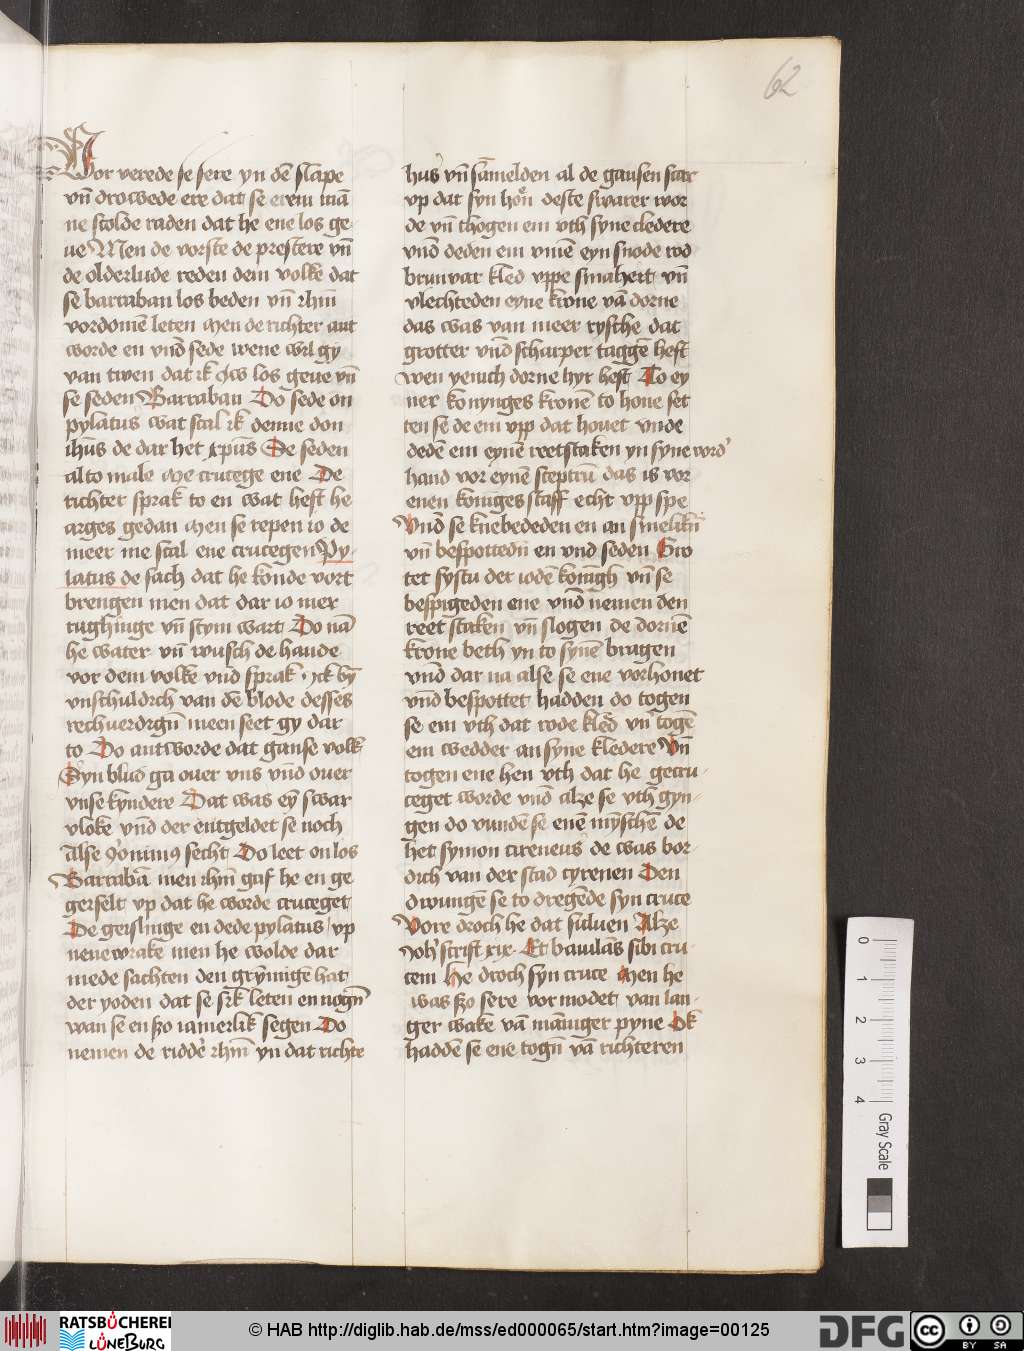 62
Vor verede se sere yn dē slape
vn̄ drowede ere dat se erem mā
ne scolde raden dat he ene los ge
ue Men de vorste de prestere vn̄
de olderlude reden dem volke dat
se barraban los beden vn̄ ihm̄
vordomē leten Men de richter ant
worde en vnd̄ sede wene wil gy
van twen dat ik iw los geue vn̄
se seden Barraban Do sede on
pylatus wat scal ik denne don
ihūs de dar het xp̄us De seden
al to male Me crucege ene De
richter sprak to en wat heft he
arges gedan Men se repen io de
meer me scal ene crucegen Py-
latus de sach dat he konde vort
brengen men dat dar io mer
rughinge vn̄ stym wart Do nā
he water vn̄ wusch de hande
vor dem volke vnd̄ sprak · yck bȳ
vnschuldich van dē blode desses
rechuerdign̄ meen seet gy dar
to Do antworde dat ganse volk
Syn blud ga ouer vns vnd̄ ouer
vnse kyndere Dat was eȳ swar
vloke vnd̄ der entgeldet se noch
Alse Jeronim9 secht Do leet on los
Barrabā men ihm̄ gaf he en ge
geiselt vp dat he worde cruceget
De geislinge en dede pylatus vp
nene wrake men he wolde dar
mede sachten den grȳmigē hat
der yoden dat se sik leten en nogn̄
wan se en szo iamerlik segen Do
nemen de riddē ihm̄ yn dat richte
hus vn̄ sāmelden al de gansen scar
vp dat syn hon̄ deste swarer wor
de vn̄ thogen em vth syne cledere
vnd̄ deden em vmē eyn snode rod
brunvar kled vppe smaheit vn̄
vlechteden eyne krone vā dorne
das was van meer rysche dat
groter vnd̄ scharper taggē heft
wen yenich dorne hyr heft To ey
ner konynges kronē to hone set
ten se de em vpp dat houet vnde
dedē em eynē reetstaken yn syne vord'
hand vor eynē sceptrū das is vor
enen koniges staff echt vpp spe
Vnd̄ se knebededen en an smeliken̄
vn̄ bespotteden̄ en vnd seden Gro
tet systu der iodē konigh vn̄ se
bespigeden ene vnd̄ nemen den
reet staken vn̄ slogen de dornē
krone beth yn to synē bragen
vnd̄ dar na alse se ene vorhonet
vnd̄ bespottet hadden do togen
se em vth dat rode kled̄ vn̄ togē
em wedder an syne kledere Vn̄
togen ene hen vth dat he gecru-
ceget worde vnd̄ alze se vth gyn-
gen do vundē se enē mȳschē de
het symon cireneus de was bor-
dich van der stad cyrenen Den
dwungē se to dregēde syn cruce
Vore droch he dat suluen Alze
Joh' scrift xix · Et baiulās sibi cru
cem He droch syn cruce Men he
was szo sere vormodet van lan-
ger wake vā māniger pyne Ok
haddē se ene togn̄ vā richteren
0
1
2
3
4
Gray Scale
RATSBÜCHEREI
LÜNEBURG
© HAB http://diglib.hab.de/mss/ed000065/start.htm?image=00125
DFG
cc BY SA